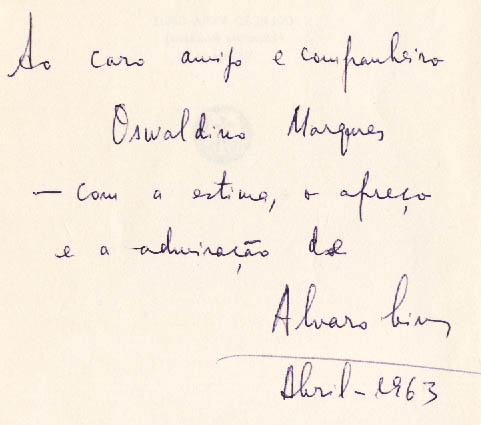 Ao caro amigo e companheiro
Oswaldino Marques
— com a estima, o apreço
e a admiração de
Alvaro Lins
Abril-1963